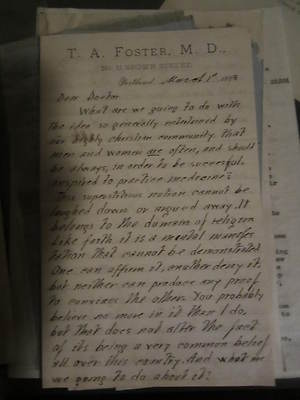 T. A. FOSTER, M. D.,
Portland, March 1st
Dear Doctor
What are we going to do with
the idea so generally entertained by
our highly christian community that
men and women are often, and should
be always, in order to be successful,
inspired to practice medicine?
This superstitious notion cannot be
laughed down or argued away. It
belongs to the domain of religion
Like faith it is a mental manifes
tation that cannot be demonstrated.
One can affirm it, another deny it
but neither can produce any proof
to convince the other. You probably
believe no more in it than I do,
but that does not alter the fact
of its being a very common belief
all over this country. And what are
we going to do about it?